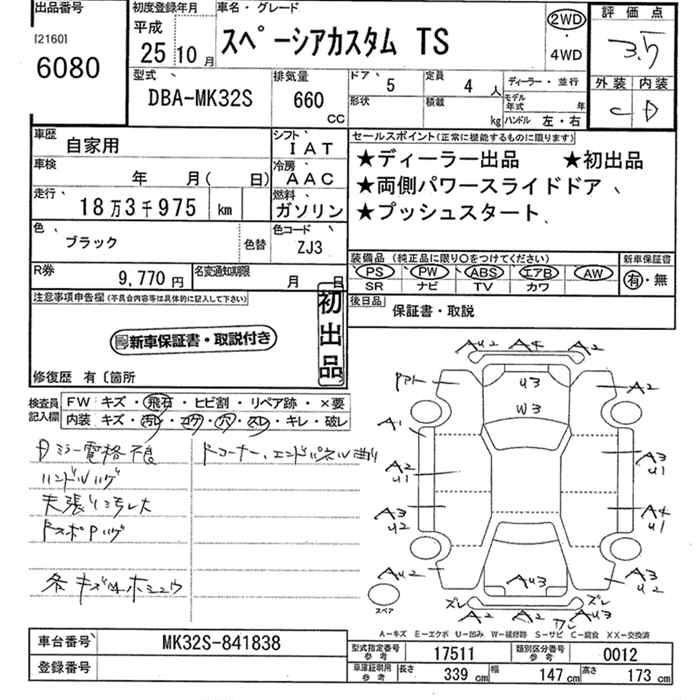 出品番号
[2160]
6080
初度登録年月
平成
25 10 月
車名・グレード
スペーシアカスタム TS
2WD
・
4WD
評価点
3.5
外装 内装
C D
型式
DBA-MK32S
排気量
660
CC
ドア
5
定員
4 人
形状
積載
kg
ディーラー・並行
モデル年式 年
ハンドル 左・右
車歴
自家用
シフト
IAT
車検
年 月( 日)
冷房
AAC
走行
18万3千975 km
燃料
ガソリン
色
ブラック
色替
色コード
ZJ3
R券
9,770 円
名変通知期限
月 日
セールスポイント(正常に機能するものに限ります)
★ディーラー出品 ★初出品
★両側パワースライドドア
★プッシュスタート
装備品 (純正品に限り○をつけてください)
PS PW ABS エアB AW
SR ナビ TV カワ
新車保証書
有・無
後日品
保証書・取説
注意事項申告欄(不具合内容等は具体的に記入して下さい)
新車保証書・取説付き
初出品
修復歴 有〔箇所
検査員記入欄
FW キズ・飛石・ヒビ割・リペア跡・×要
内装 キズ・汚レ・コゲ・穴・スレ・キレ・破レ
ハンドルハゲ
AU2 A4 A2
U3
W3
A2
A1
A2
U1
A3
U2
AU2
A3
U1
A4
U1
A3
U2
AU3
ズレ
A2 A2
ズレ
スペア
A－キズ E－エクボ U－凹み W－補修跡 S－サビ C－腐食 XX－交換済
車台番号
MK32S-841838
登録番号
型式指定番号
参考
17511
類別区分番号
参考
0012
車庫証明用
参考
長さ 339 cm 幅 147 cm 高さ 173 cm